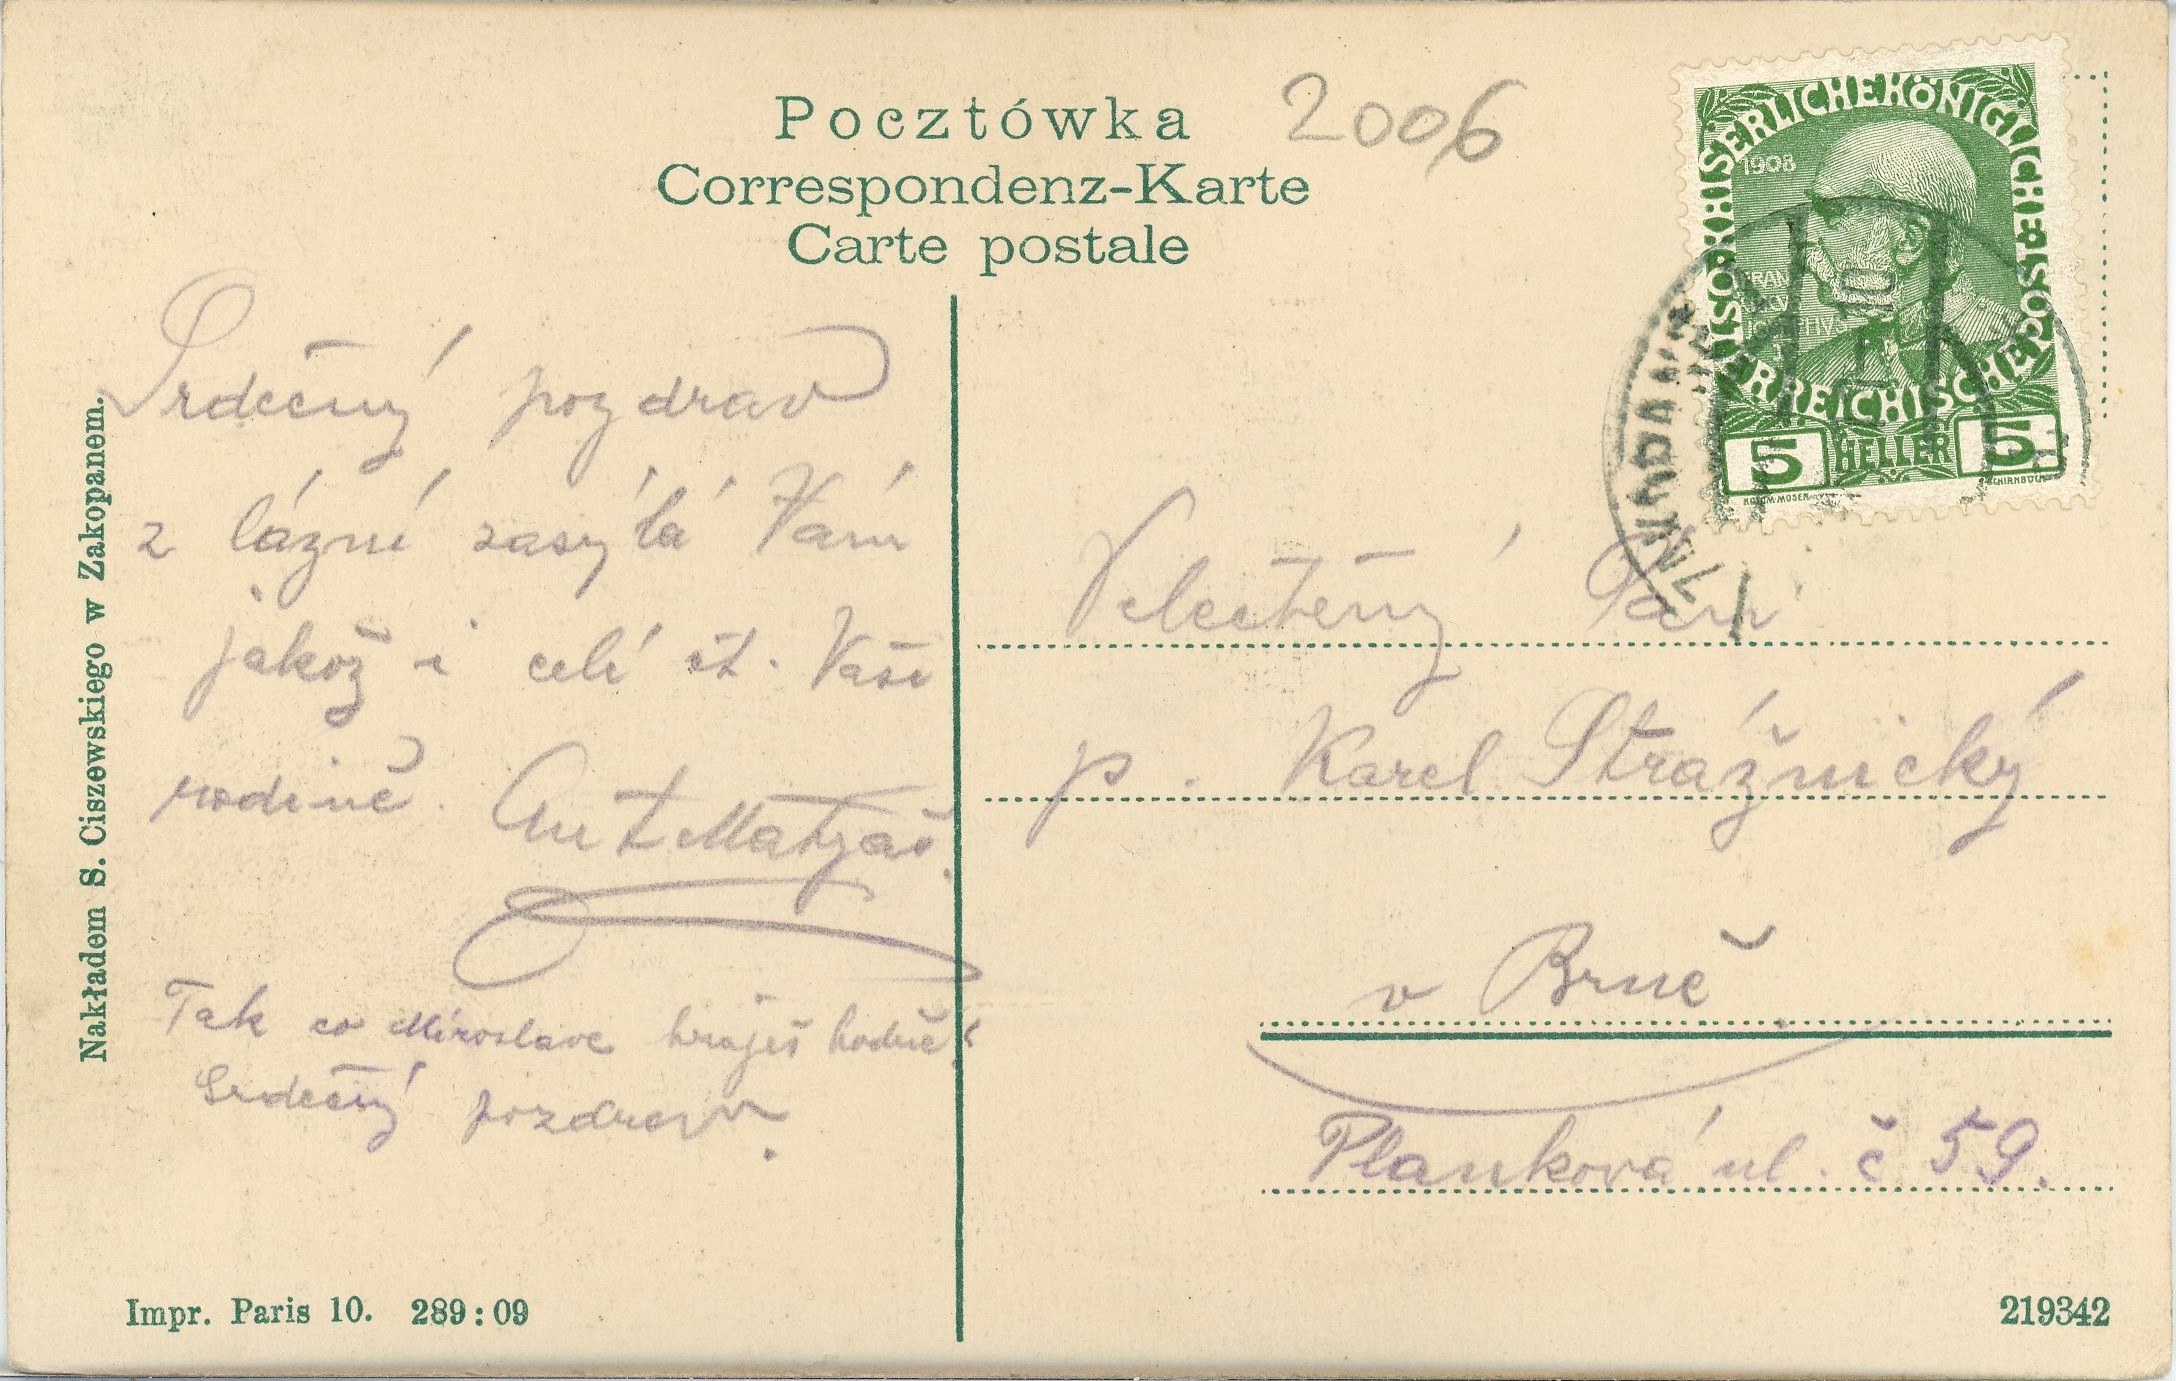 Pocztówka
2006
Correspondenz-Karte
Carte postale
KAISERLICHE KÖNIGLICHE ÖSTERREICHISCHE POST
1908
FRANZ
JOSEPH
5 HELLER 5
KOLOM. MOSER
SCHIRNBÖCK
ZAKOPANE
10
Nakładem S. Ciszewskiego w Zakopanem.
Srdečný pozdrav
z lázní zasýlá Vám
jakož i celé ct. Vaší
rodině. Ant Matyáš.
Tak co Miroslave hraješ hodně?
Srdečný pozdrav.
Velectěný Pán
p. Karel Strážnický
v Brně
Planková ul. č 59.
Impr. Paris 10. 289:09
219342